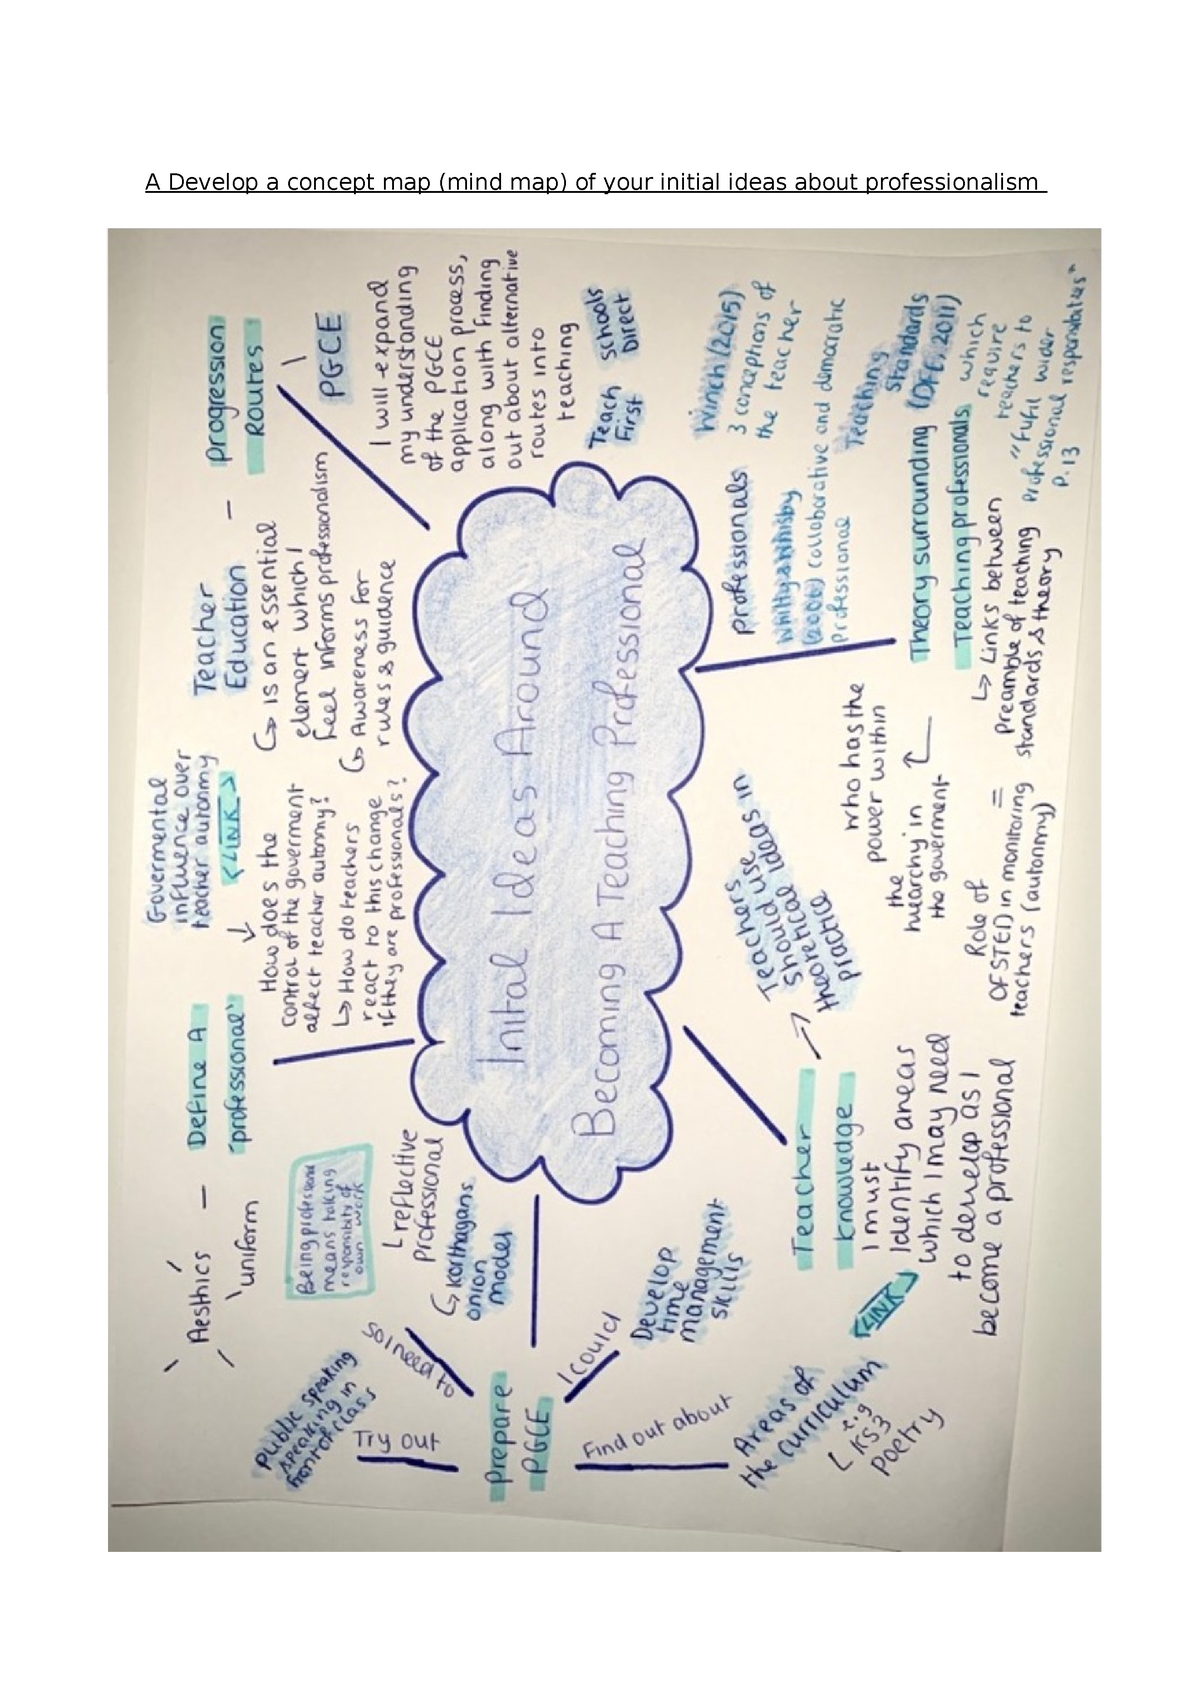 A Develop a concept map (mind map) of your initial ideas about professionalism
Inital Ideas Around
Becoming A Teaching Professional
Aesthics —
uniform
Define A
'professional'
Govermental
influence over
teacher autonomy
<LINK>
How does the
control of the goverment
affect teacher autonomy?
↳ How do teachers
react to this change
if they are professionals?
Teacher
Education —
↳ is an essential
element which I
feel informs professionalism
↳ Awareness for
rules & guidence
Progression
Routes
PGCE
I will expand
my understanding
of the PGCE
application process,
along with finding
out about alternative
routes into
teaching
Teach
First
Schools
Direct
Being professional
means taking
responsibity of
own work
↳ reflective
professional
↳ Korthagans
onion
model
Prepare
PGCE
So I need to
Try out
Public speaking
speaking in
front of class
I could
Develop
time
management
skills
Find out about
Areas of
the curriculum
↳ e.g
KS3
poetry
<LINK>
Teacher
knowledge
I must
Identify areas
which I may need
to develop as I
become a professional
Teachers
should use
theoretical ideas in
practice
who has the
power within
the
hiearchy in
the goverment
Role of
OFSTED in monitoring =
teachers (autonomy)
Theory surrounding
Teaching professionals
↳ Links between
Preamble of teaching
standards & theory
professionals
Winch (2015)
3 conceptions of
the teacher
Whitty & Whisby
(2006) collaborative and democratic
professional
Teaching
Standards
(DFE, 2011)
which
require
teachers to
"fulfil wider
professional responsibilities"
P.13